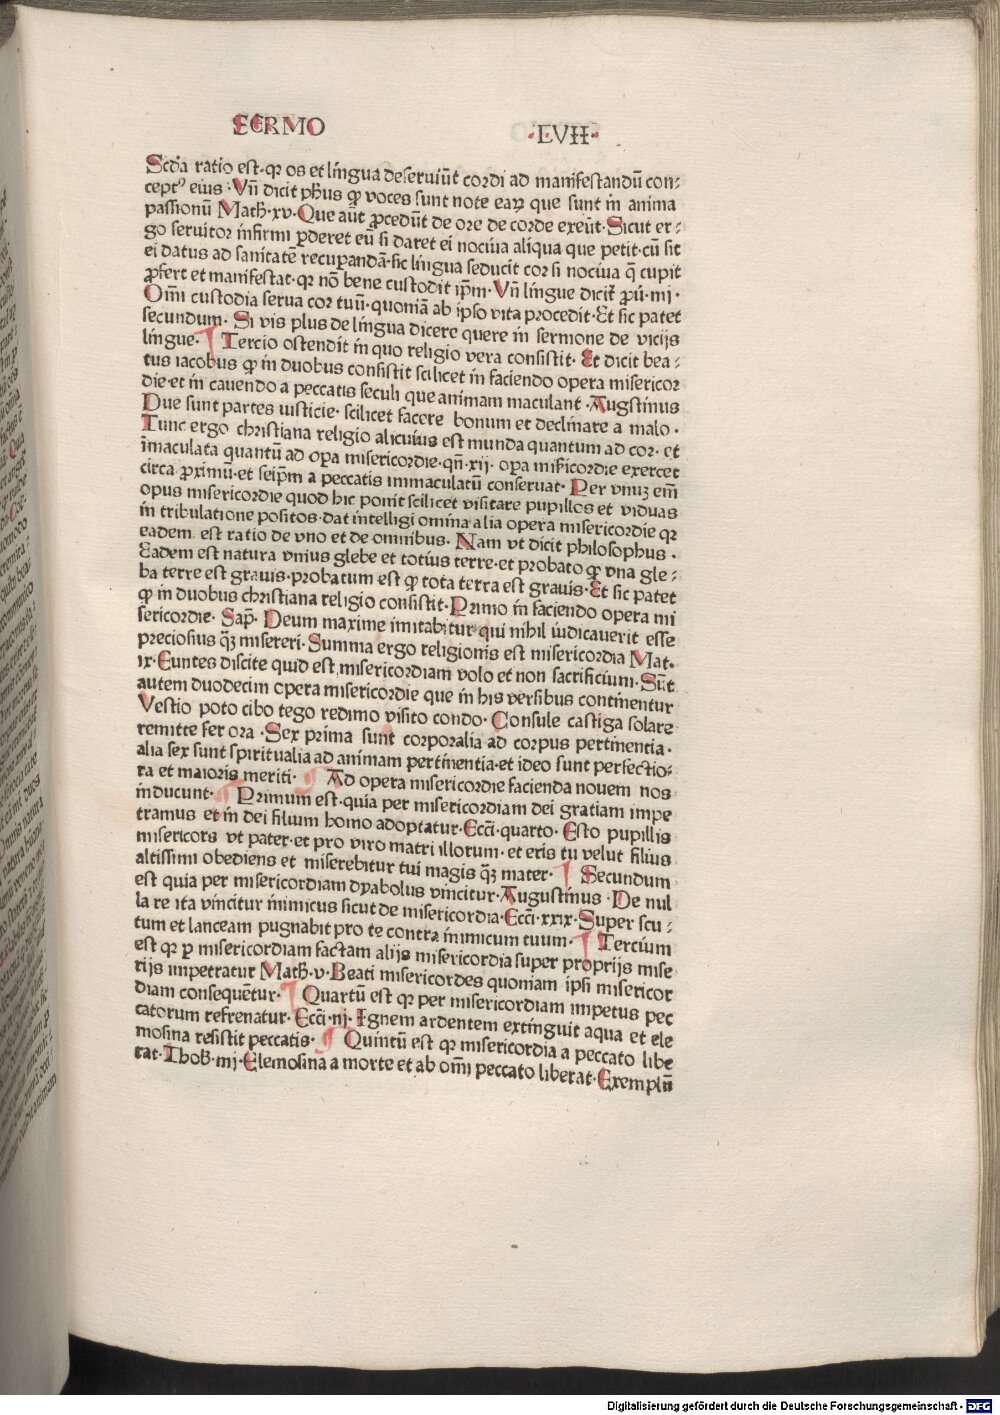 SERMO ·LVII·
Scd̄a ratio est· qꝛ os et lingua deseruiūt cordi ad manifestandū con⸗
ceptꝰ eius· Vn̄ dicit ph̄us ꝙ voces sunt note eaꝝ que sunt in anima
passionū Math̄·xv· Que aut̄ ꝓcedūt de ore de corde exeūt· Sicut er⸗
go seruitor infirmi ꝑderet eū si daret ei nociua aliqua que petit· cū sit
ei datus ad sanitatē recuꝑandā· sic lingua seducit cor si nociua q̄ cupit
ꝓfert et manifestat· qꝛ nō bene custodit ip̄m· Vn̄ lingue dicit᷑ ꝓu᷑· iiij·
Om̄i custodia serua cor tuū· quoniā ab ipso vita procedit· Et sic patet
secundum· Si vis plus de lingua dicere quere in sermone de vicijs
lingue· ¶ Tercio ostendit in quo religio vera consistit· Et dicit bea⸗
tus iacobus ꝙ in duobus consistit scilicet in faciendo opera misericor
die· et in cauendo a peccatis seculi que animam maculant· Augstinus
Due sunt partes iusticie· scilicet facere bonum et declinare a malo·
Tunc ergo christiana religio alicuius est munda quantum ad cor· et
īmaculata quantū ad oꝑa misericordie· qn̄·xij· oꝑa mīcordie exercet
circa ꝓximū· et seip̄m a peccatis immaculatū conseruat· Per vnuz em̄
opus misericordie quod hic ponit scilicet visitare pupillos et viduas
in tribulatione positos· dat intelligi omina alia opera misericordie qꝛ
eadem est ratio de vno et de omnibus· Nam vt dicit philosophus·
Eadem est natura vnius glebe et totius terre· et probato ꝙ vna gle⸗
ba terre est grauis· probatum est ꝙ tota terra est grauis· Et sic patet
ꝙ in duobus christiana religio consistit· Primo in faciendo opera mi
sericordie· Sap̄· Deum maxime imitabitur qui nihil iudicauerit esse
preciosius qꝫ misereri· Summa ergo religionis est misericordia Mat·
ix· Euntes discite quid est misericordiam volo et non sacrificium· Sūt
autem duodecim opera misericordie que in his versibus continentur
Vestio poto cibo tego redimo visito condo· Consule castiga solare
remitte fer ora· Sex prima sunt corporalia ad corpus pertinentia·
alia sex sunt spiritualia ad animam pertinentia· et ideo sunt perfectio⸗
ra et maioris meriti· ¶ Ad opera misericordie facienda nouem nos
inducunt· ¶ Primum est· quia per misericordiam dei gratiam impe
tramus et in dei filium homo adoptatur· Ecc̄i· quarto· Esto pupillis
misericors vt pater· et pro viro matri illorum· et eris tu velut filius
altissimi obediens et miserebitur tui magis qꝫ mater· ¶ Secundum
est quia per misericordiam dyabolus vincitur· Augustinus· De nul
la re ita vincitur inimicus sicut de misericordia· Ecc̄i·xxix· Super scu⸗
tum et lanceam pugnabit pro te contra inimicum tuum· ¶ Tercium
est qꝛ ꝑ misericordiam factam alijs misericordia super proprijs mise
rijs impetratur Math̄·v· Beati misericordes quoniam ipsi misericor
diam consequētur· ¶ Quartū est qꝛ per misericordiam impetus pec
catorum refrenatur· Ecc̄i·iij· Ignem ardentem extinguit aqua et ele
mosina resistit peccatis· ¶ Quintū est qꝛ misericordia a peccato libe
rat· Thob̄·iiij· Elemosina a morte et ab om̄i peccato liberat· Exemplū
Digitalisierung gefördert durch die Deutsche Forschungsgemeinschaft · DFG